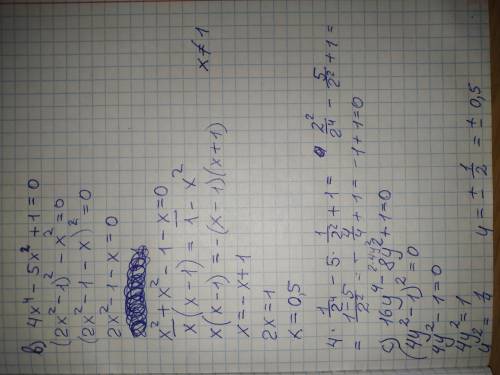 в) 4x⁴ - 5x² + 1 = 0
(2x² - 1)² - x² = 0
(2x² - 1 - x)² = 0
2x² - 1 - x = 0
x² + x² - 1 - x = 0
x(x - 1) = 1 - x²
x(x - 1) = -(x - 1)(x + 1)
x ≠ 1
x = -x + 1
2x = 1
x = 0,5
4 · 1/2⁴ - 5 · 1/2² + 1 = 2²/2⁴ - 5/2² + 1 =
= (1 - 5)/2² = -4/4 + 1 = -1 + 1 = 0
с) 16y⁴ - 8y² + 1 = 0
(4y² - 1)² = 0
4y² - 1 = 0
4y² = 1
y² = 1/4
y = ± 1/2 = ± 0,5